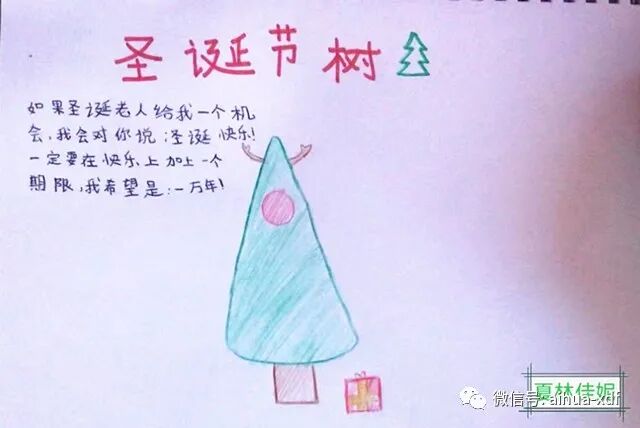 圣诞节树
如果圣诞老人给我一个机
会,我会对你说:圣诞快乐!
一定要在快乐上加上一个
期限,我希望是:一万年!
夏林佳妮
微信号: ainua-xdf